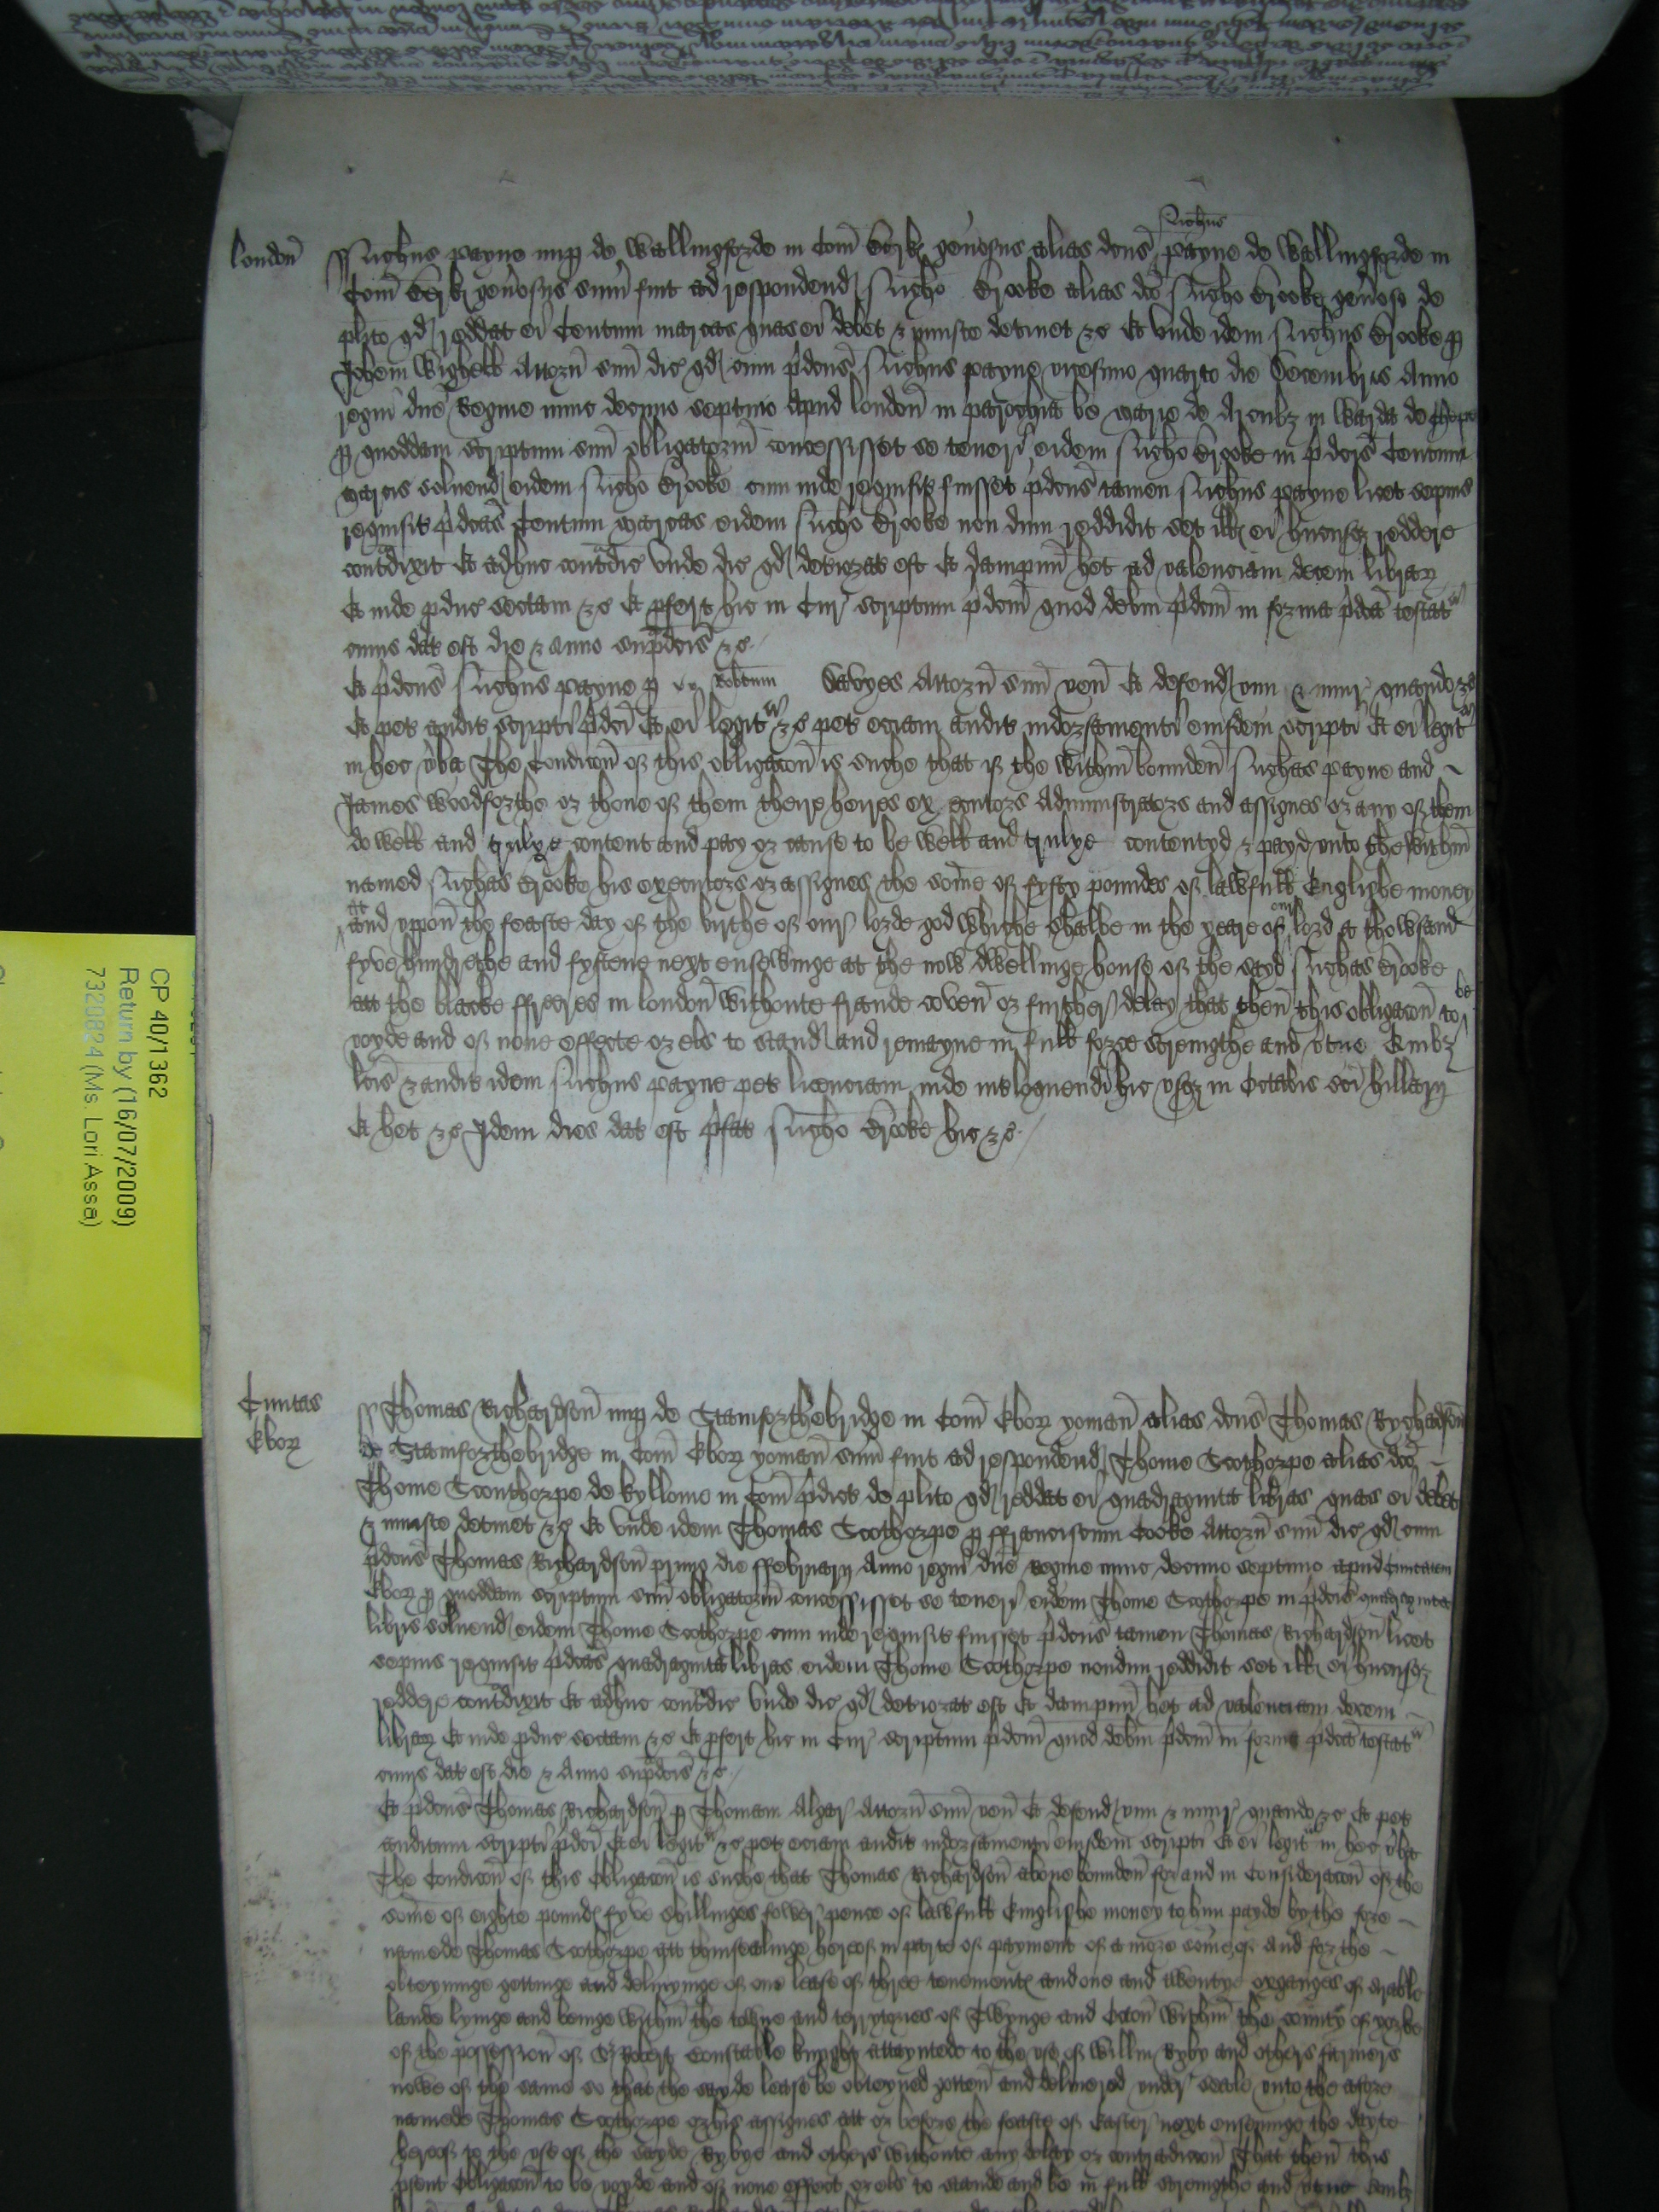 london̄
Nich̄us payne nup̱ de Wallingforde in Com̄ Berk̄ gen̄osus alias dc̄us Nich̄us payne de Wallingforde in
Com̄ Berk̄ gen̄osus sum̄ fuit ad respondend Nich̄o Brooke alias dc̄o Nich̄o Brooke gen̄oso de
pl̄ito qd reddat ei Centum marcas quas ei debet & iniuste detinet &c Et unde idem Nich̄us Brooke p̱
Joh̄em Wighell Attorn̄ suū dic̄ qd cum p̄dc̄us Nich̄us payne vicesimo quarto die Decembris Anno
regni dn̄e Regine nunc decimo septimo apud london̄ in parochia be marie de Arcubȝ in Warda de chepe
p̱ quoddam scriptum suū obligatoriū concessisset se teneri eidem Nich̄o Brooke in p̄dc̄is Centum
marcis solvend eidem Nich̄o Brooke cum inde requisit fuisset p̄dc̄us tamen Nich̄us payne licet sepius
requisit p̄dc̄as Centum marcas eidem Nich̄o Brooke non dum reddidit set ill ei hucusqȝ reddere
cont̄dixit Et adhuc cont̄dic̄ Unde dic̄ qd deteriorat est Et dampnū het ad valenciam decem librar
Et inde p̱duc̄ sectam &c Et p̱fert hic in Cur scriptum p̄dc̄m quod debm̄ p̄dc̄m in forma p̄dc̄a testat
cuius dat est die & anno sup̱dc̄is &c
Et p̄dc̄us Nich̄us payne p̱ Rob̄tum Davyes Attorn̄ suū ven̄ Et defend vim & iniur quando &c
Et pet audit scripti p̄dc̄i Et ei legit &c pet eciam audit indorsamenti eiusdem scripti Et ei legit
in hec v̄ba The Condic̄on of this obligac̄on is suche that if the within bounden̄ Nich̄as payne and
James Woodforthe or thone of them theire heires executors Administrators and assignes or any of them
do well and trulye content and pay or cause to be well and trulye contentyd & payd unto the within̄
named Nich̄as Brooke his executors or assignes the some of fyfty poundes of lawfull Englishe money
att and uppon the feaste day of the birthe of our lorde god whiche shalbe in the yeare of our lord a thowsand
fyve hundrethe and fyftene next ensewinge at the now dwellinge house of the sayd Nich̄as Brooke
att the blacke ffreres in london̄ withoute fraude coven̄ or further delay that then̄ this obligac̄on to be
voyde and of none effecte or els to stand and remayne in full force strengthe and v̄tue Quibȝ
lc̄is & audit idem Nich̄us payne pet licenciam inde int̄loquendi hic usqȝ in Octabis sc̄i hillarij
Et het &c Idem dies dat est p̄fat Nich̄o Brooke hic &c
Civitas
Ebor
Thomas Richardson̄ nup̱ de Stamforthebridge in Com̄ Ebor yoman̄ alias dc̄us Thomas Rychardson̄
de Stamforthebridge in Com̄ Ebor yoman̄ sum̄ fuit ad respondend Thome Scothorpe alias dc̄o
Thome Scouthorpe de kyllome in Com̄ p̄dict de pl̄ito qd reddat ei quadraginta libras quas ei debet
& iniuste detinet &c Et unde idem Thomas Scothorpe p̱ ffranciscum Cooke Attorn̄ suū dic̄ qd cum
p̄dc̄us Thomas Richardson̄ primo die ffebruarij Anno regni dn̄e Regine nunc decimo septimo apud Civitatem
Ebor p̱ quoddam scriptum suū obligatoriū concessisset se teneri eidem Thome Scothorpe in p̄dc̄is quadraginta
libris solvend eidem Thome Scothorpe cum inde requisit fuisset p̄dc̄us tamen Thomas Richardson̄ licet
sepius requisit p̄dc̄as quadraginta libras eidem Thome Scothorpe nondum reddidit set ill ei hucusqȝ
reddere cont̄dixit Et adhuc cont̄dic̄ Unde dic̄ qd deteriorat est Et dampnū het ad valenciam decem
librar Et inde p̱duc̄ sectam &c Et p̱fert hic in Cur scriptum p̄dc̄m quod debm̄ p̄dc̄m in forma p̄dc̄a testat
cuius dat est die & Anno sup̱dc̄is &c
Et p̄dc̄us Thomas Richardson̄ p̱ Thomam Algar Attorn̄ suū ven̄ Et defend vim & iniur quando &c Et pet
auditum scripti p̄dc̄i Et ei legit &c pet eciam audit indorsamenti eiusdem scripti Et ei legit in hec v̄ba
The Condic̄on of this Obligac̄on is suche that Thomas Richardson̄ above bounden̄ for and in Considerac̄on of the
some of eighte pound fyve shillinges fower pence of lawfull Englishe money to him payde by the fore
namede Thomas Scothorpe att thinsealinge hereof in parte of payment of a more some of And for the
obteyninge gettinge and deliveringe of one lease of three tenement and one and twentye oxganges of arable
lande lyinge and beinge within̄ the towne and terrytories of Twynge and Octon̄ within̄ the county of yorke
of the possession̄ of Sr Robert Constable knyght attaynted to the use of Willm Ryby and others farmers
nowe of the same so that the sayde lease be obteyned gotten̄ and delivered under seale unto the afore
namede Thomas Scothorpe or his assignes att or before the feaste of Easter next ensuinge the dayte
hereof to the use of the sayde Rybye and others withoute any delay or contradicc̄on That then̄ this
p̄sent Obligac̄on to be voyde and of none effect or els to stande and be in full strengthe and v̄tue Quibȝ
CP 40/1362
Return by (16/07/2009)
7320824 (Ms. Lori Assa)